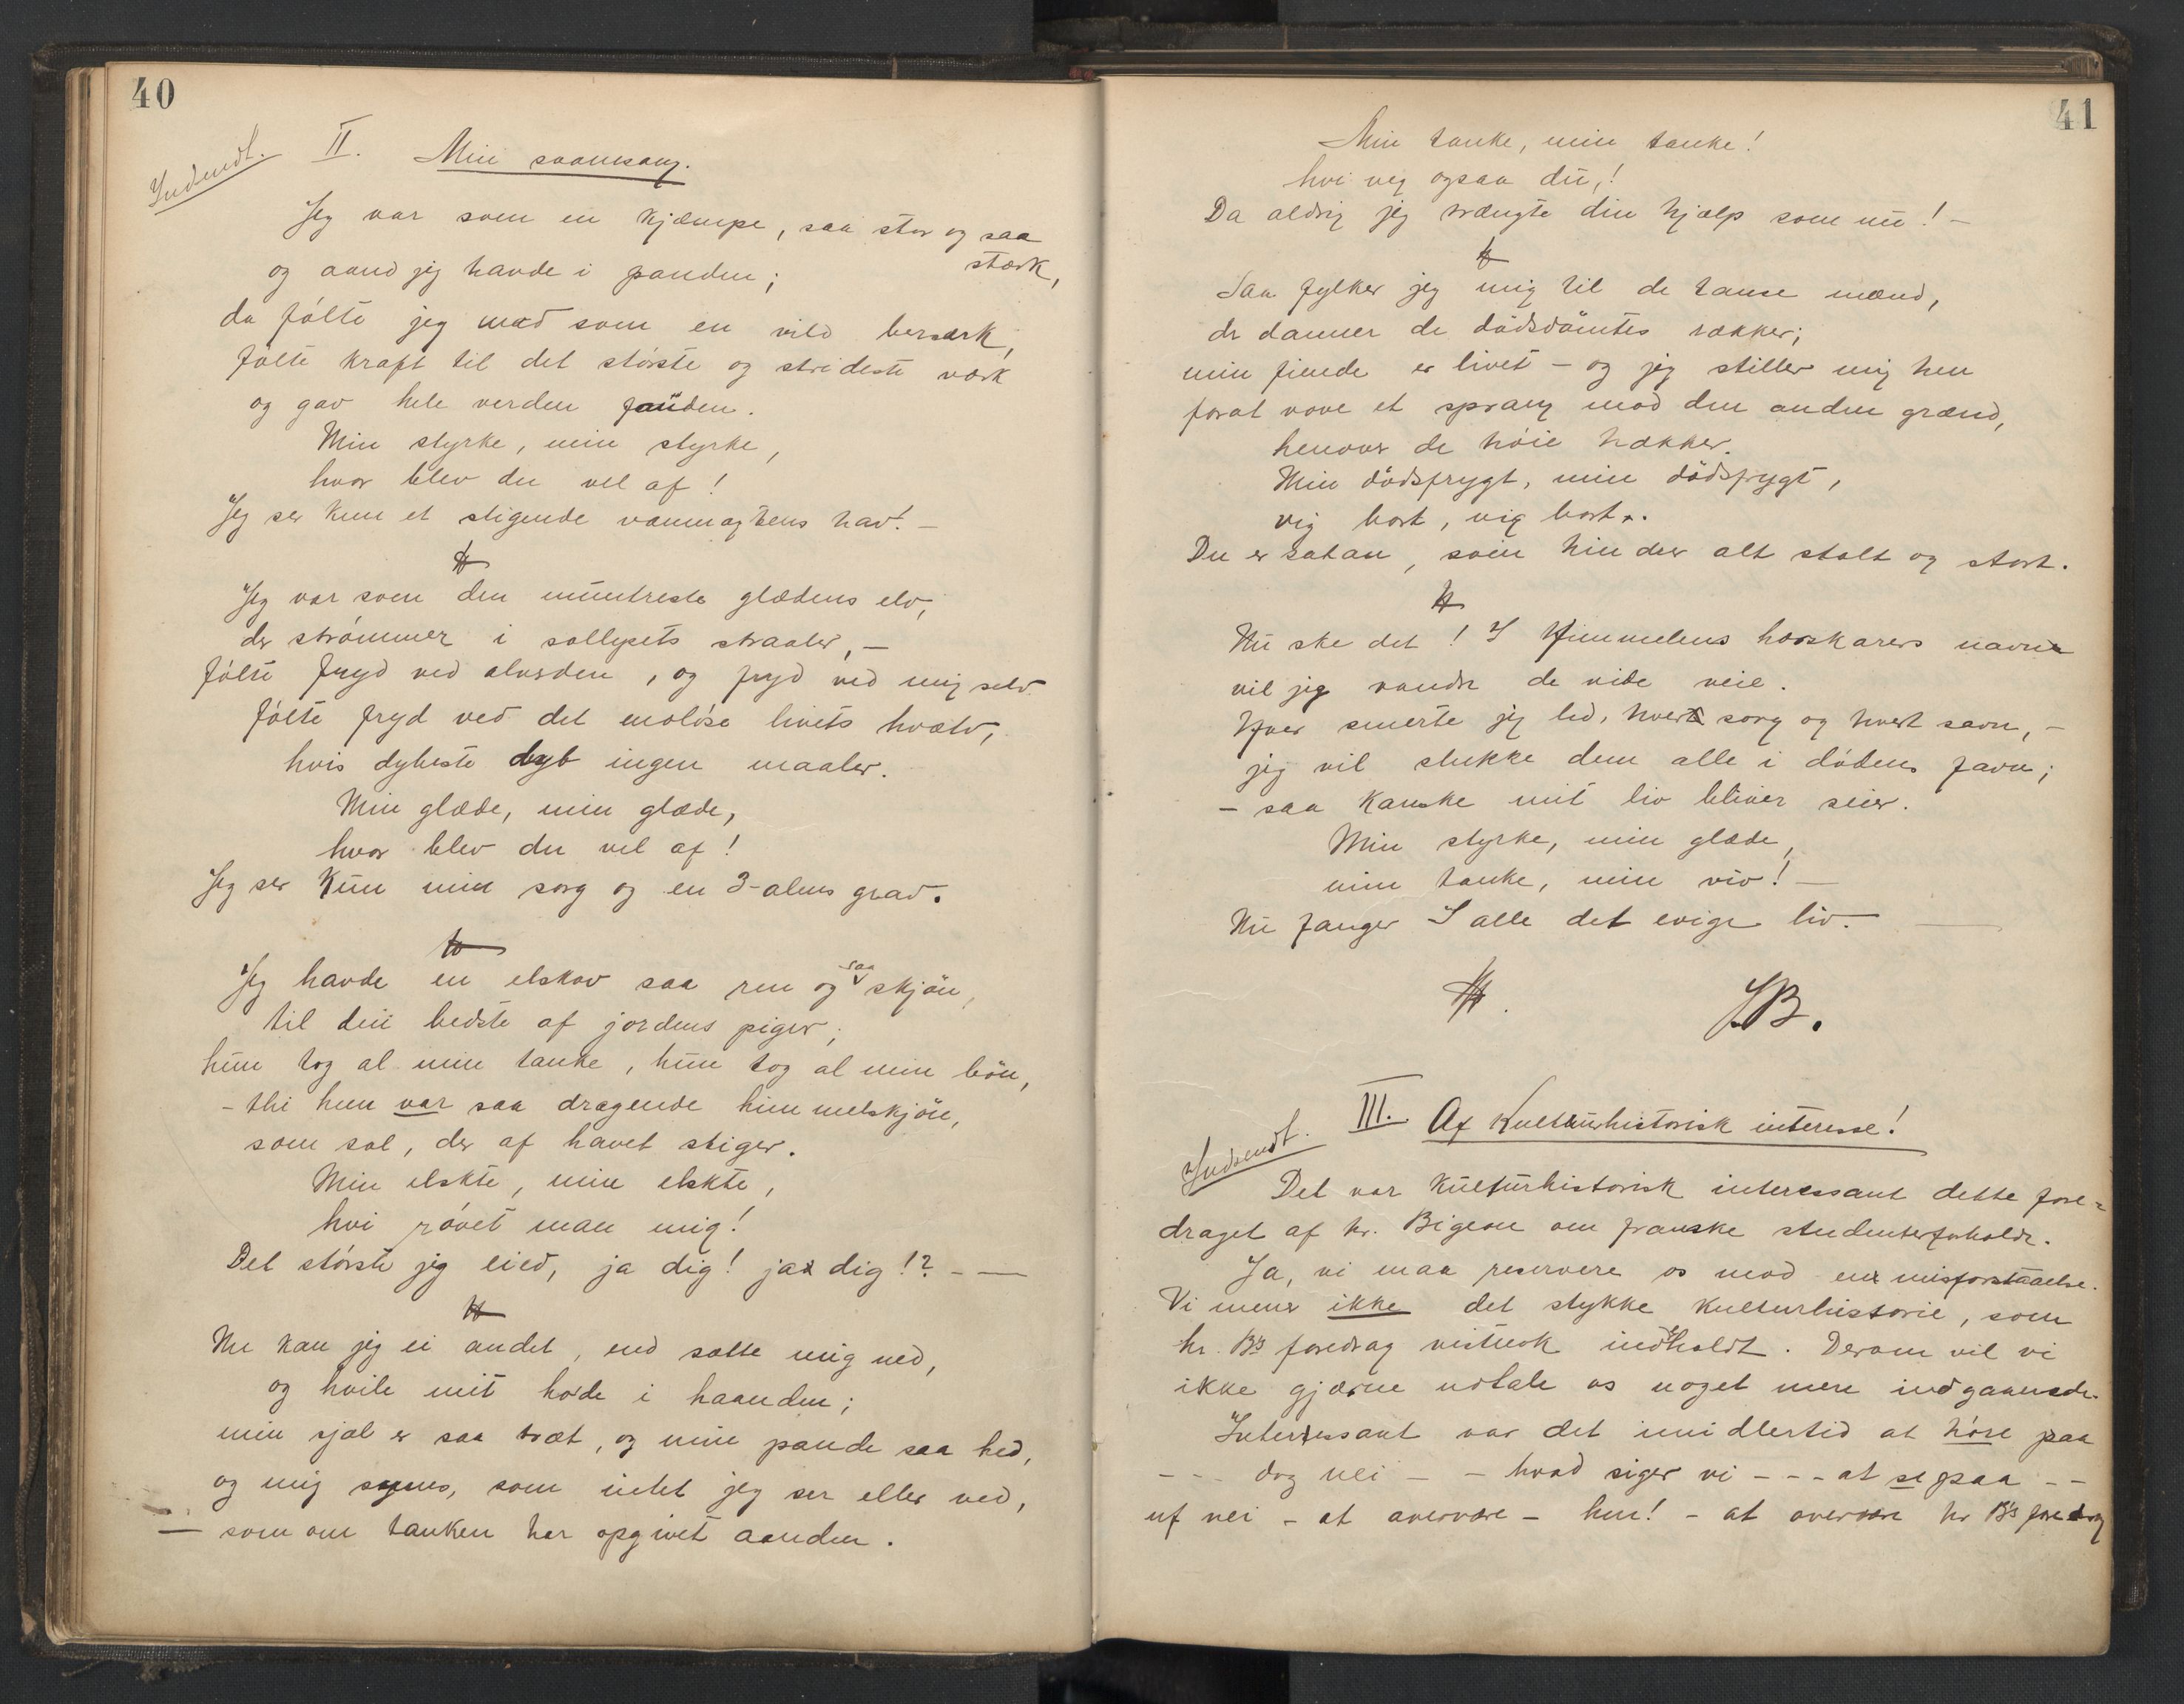 40
Indsendt.
II. Min svanesang.
Jeg var som en kjæmpe, saa stor og saa
stærk,
og aand jeg havde i panden;
da fölte jeg mod som en vild berserk,
fölte kraft til det störste og strideste værk
og gav hele verden fanden.
Min styrke, min styrke,
hvor blev du vel af!
Jeg ser kun et stigende vanmagtens hav! –
Jeg var som den muntreste glædens elv,
der strömmer i sollysets straaler, –
fölte fryd ved alverden, og fryd ved mig selv
fölte fryd ved det endlöse livets hvælv,
hvis dybeste dyb ingen maaler.
Min glæde, min glæde,
hvor blev du vel af!
Jeg ser kun min sorg og en 3-alens grav.
Jeg havde en elskov saa ren og saa skjön,
til den bedste af jordens piger;
hun tog al min tanke, hun tog al min bön,
– thi hun var saa dragende himmelskjön,
som sol, der af havet stiger.
Min elskte, min elskte,
hvi rövet man mig!
Det störste jeg eied, ja dig! ja dig!? – —
Nu kan jeg ei andet, end sætte mig ned,
og hvile mit hode i haanden;
min sjæl er saa træt, og min pande saa hed,
og mig synes, som intet jeg ser eller ved,
— som om tanken har opgivet aanden.
41
Min tanke, min tanke!
hvi veg ogsaa du,!
Da aldrig jeg trængte din hjælp som nu! –
Saa fylker jeg mig til de tause mænd,
der danner de dödsdömtes rækker;
min fiende er livet – og jeg stiller mig hen
forat vove et sprang mod den anden grænd,
henover de höie hækker.
Min dödsfrygt, min dödsfrygt,
vig bort, vig bort..
Du er satan, som hindrer alt stolt og stort.
Nu ske det! I Himmelens hærskarers navn
vil jeg vandre de vide veie.
Hver smerte jeg led, hver sorg og hvert savn, –
jeg vil slukke dem alle i dödens favn;
– saa kanske mit liv bliver seier.
Min styrke, min glæde,
min tanke, min viv! —
Nu fanger I alle det evige liv. —
J.B.
Indsendt.
III. Af Kulturhistorisk interesse!
Det var kulturhistorisk interessant dette fore-
draget af hr. Bigeon om franske studenterforholde.
Ja, vi maa reservere os mod en misforstaaelse.
Vi mener ikke det stykke kulturhistorie, som
hr. B's foredrag vistnok indeholdt. Derom vil vi
ikke gjærne udtale os noget mere indgaaende.
Interessant var det imidlertid at höre paa
– – – dog nei – – hvad siger vi – – – at se paa – –
uf nei – at overvære – hm! – at overvære hr B's foredrag